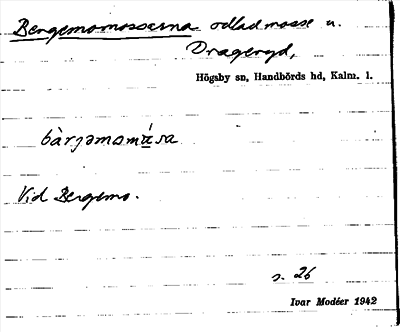 Bergemomossarna odlad mosse u.
Drageryd,
Högsby sn, Handbörds hd, Kalm. l.
bàrjəmomåsa
Vid Bergemo.
s. 26
Ivar Modéer 1942